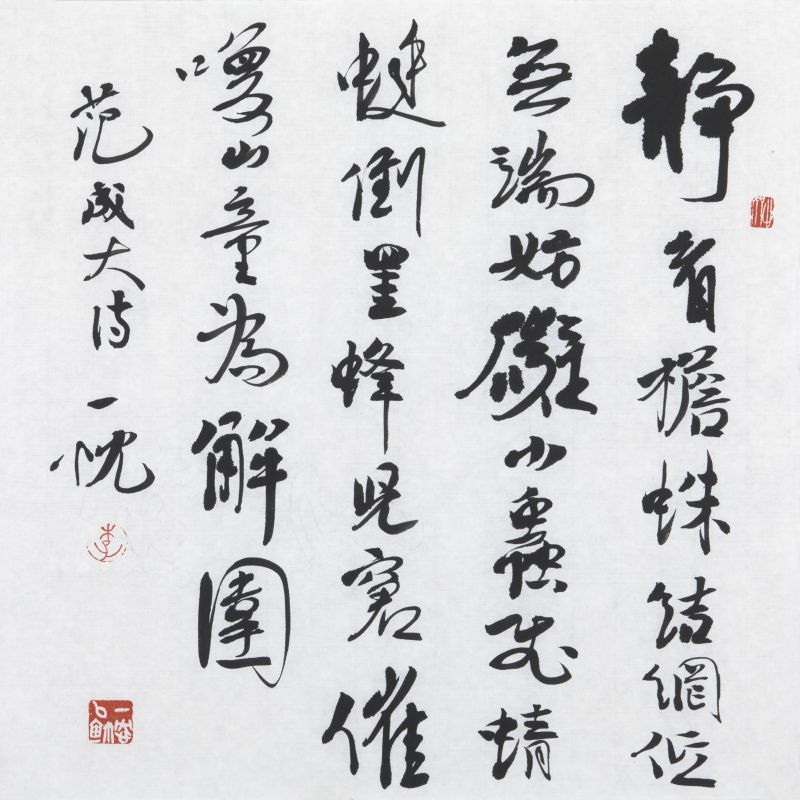 靜看檐蛛結網低
無端妨礙小蟲飛蜻
蜓倒罣蜂兒窘催
喚山童為解圍
范成大詩 一忱
李